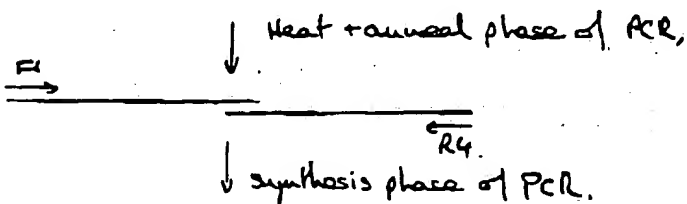 Heat + anneal phase of PCR,
F1
R4.
synthesis phase of PCR.